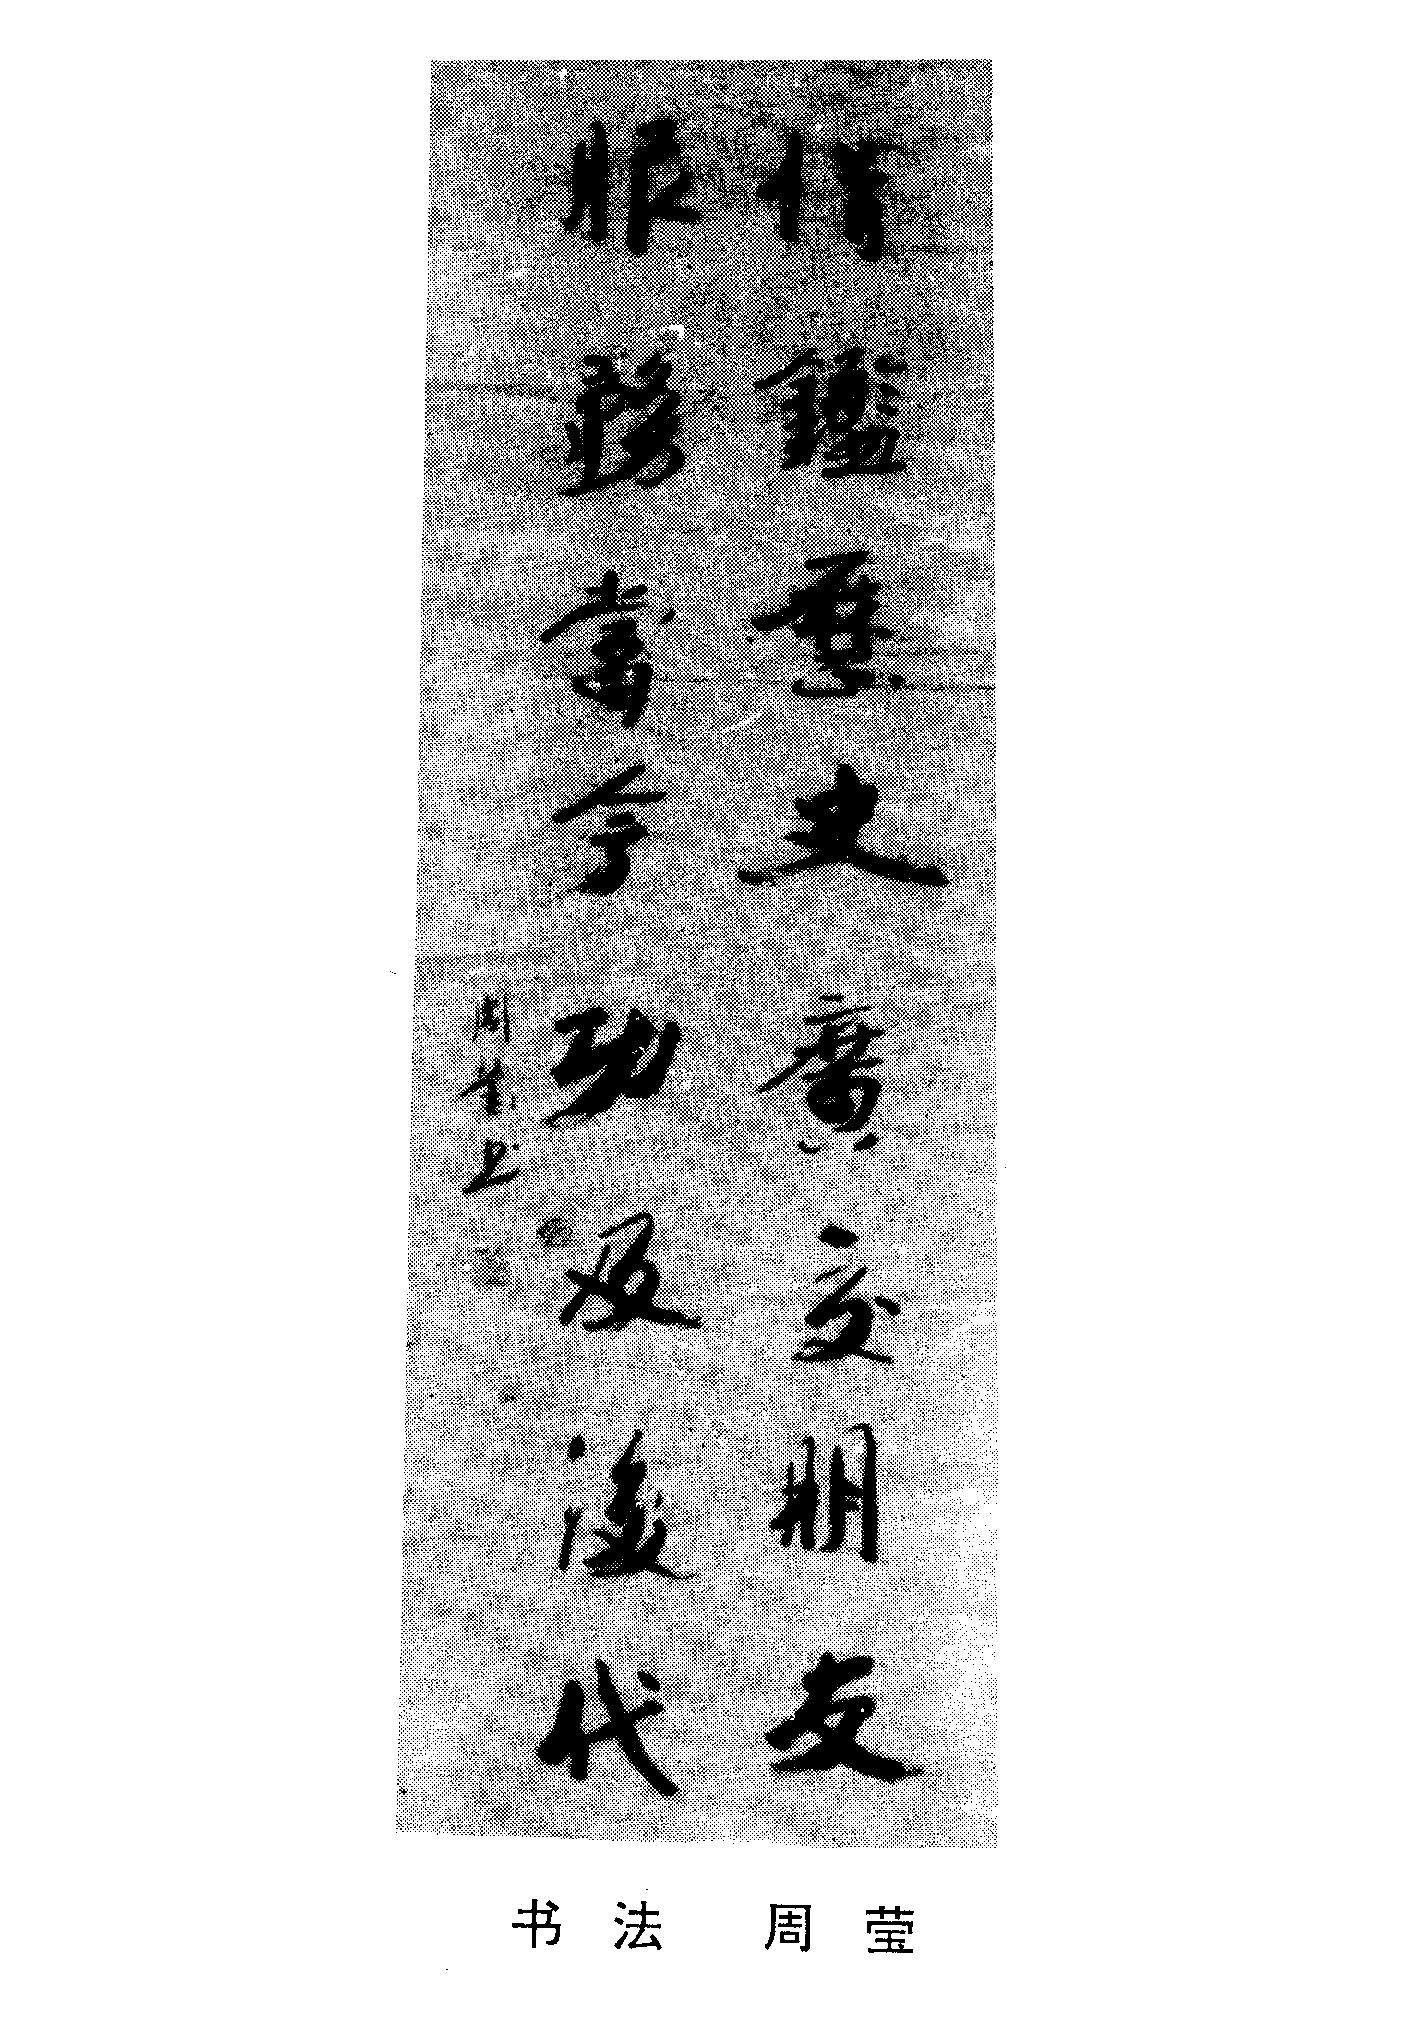 借鑑歷史廣交朋友
服務當今功及後代
周莹书
书法 周莹